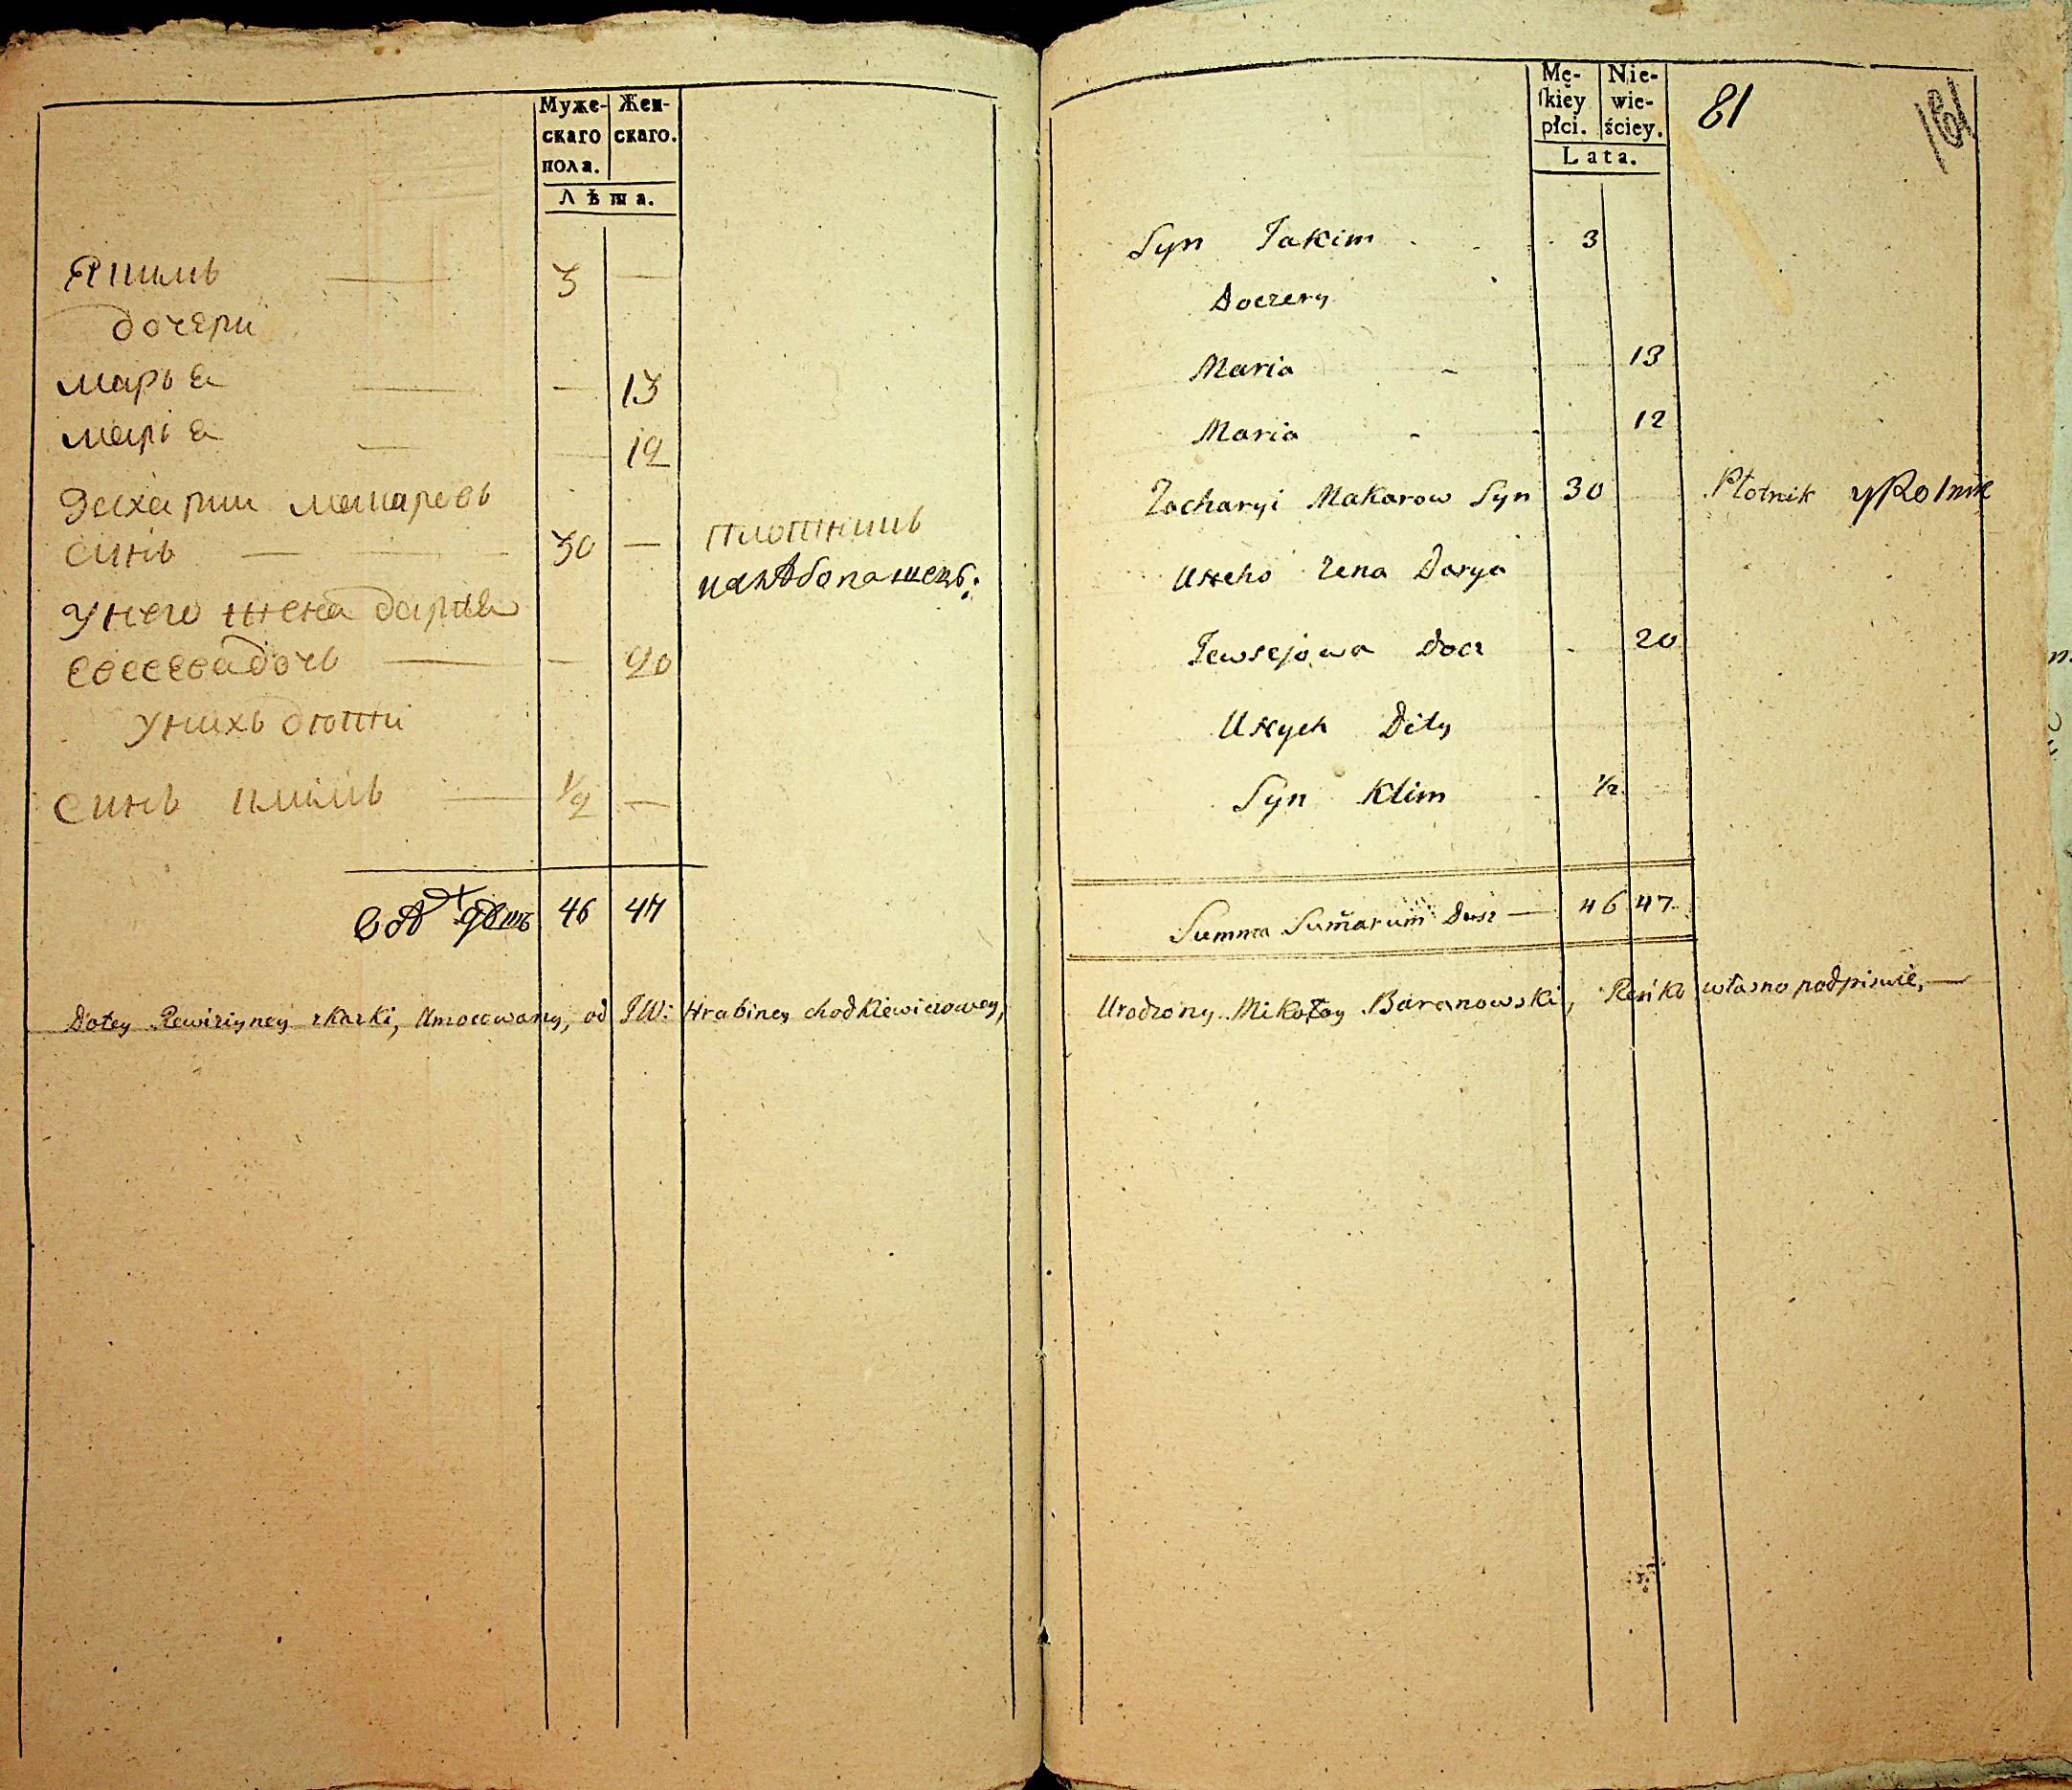 Муже- Жен-
скаго скаго.
пола.
Лѣта.
Якимъ — 3 —
дочери
марья — — 13
марія — 12
Захарии макаровъ
синъ — 30 — плотникъ
ихлѣбопашецъ.
У него жена дарья
евсеевадочь — — 20
Унихъ дютти
Синъ климъ — 1/2 —
46 47
Dotey Rewizyiney skazki, Umocowany, od JW: Hrabiney chodkiewiczowey,
Mę- Nie-
ſkiey wie-
płci. ściey.
Lata.
81
181
Syn Jakim 3
Doczery
Maria - 13
Maria - 12
Zacharyi Makarow Syn 30 Płotnik y Rolnik
Uneho żena Darya
Jewsejowa Docz 20
Unych Dity
Syn Klim 1/2
Summa Sum̃arum Dusz — 46 47
Urodzony Mikołay Baranowski, Ręńko własno podpisuie,—